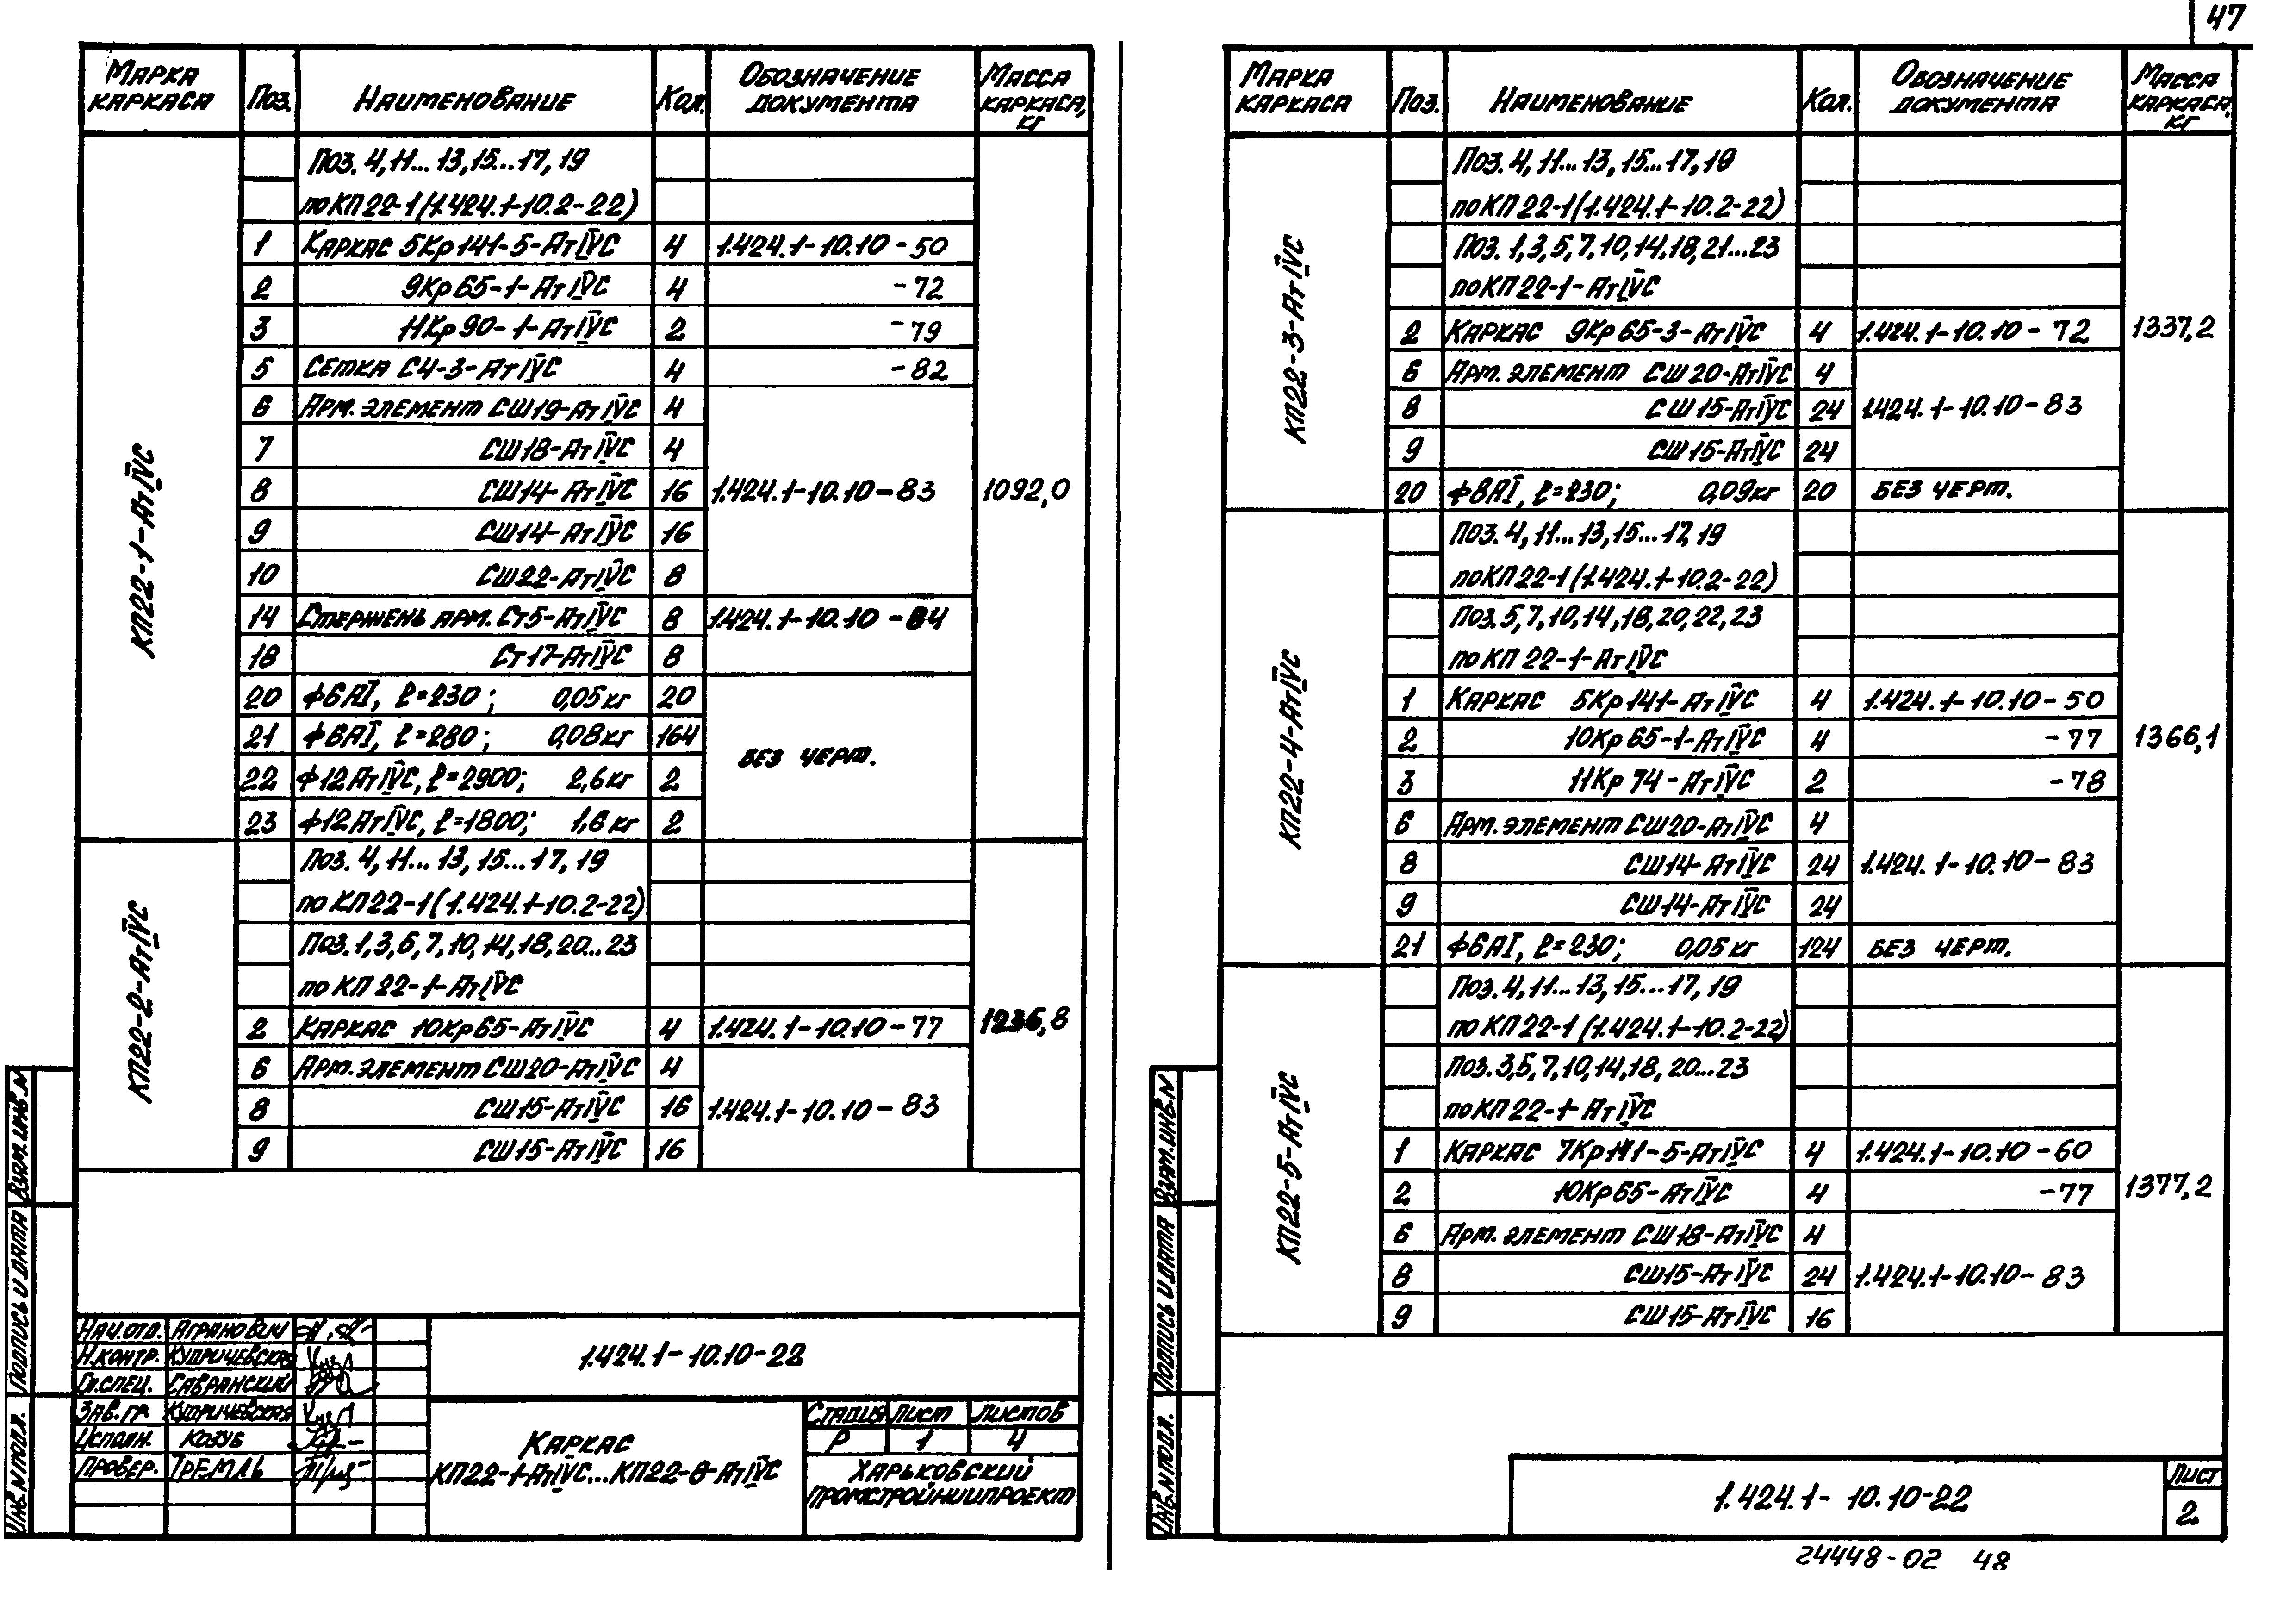 47
Марка каркаса Поз. Наименование Кол. Обозначение документа Масса каркаса, кг
КП22-1-АтIVС
Поз. 4, 11... 13, 15... 17, 19
по КП22-1 (1.424.1-10.2-22)
1 Каркас 5Кр141-5-АтIVС 4 1.424.1-10.10-50
2 9Кр65-1-АтIVС 4 -72
3 11Кр90-1-АтIVС 2 -79
5 Сетка С4-3-АтIVС 4 -82
6 Арм. элемент СШ19-АтIVС 4
7 СШ18-АтIVС 4
8 СШ14-АтIVС 16 1.424.1-10.10-83 1092,0
9 СШ14-АтIVС 16
10 СШ22-АтIVС 8
14 Стержень арм. Ст5-АтIVС 8 1.424.1-10.10-84
18 Ст17-АтIVС 8
20 ф6АI, ℓ=230; 0,05кг 20
21 ф8АI, ℓ=280; 0,08кг 164 без черт.
22 ф12АтIVС, ℓ=2900; 2,6кг 2
23 ф12АтIVС, ℓ=1800; 1,6кг 2
КП22-2-АтIVС
Поз. 4, 11... 13, 15... 17, 19
по КП22-1 (1.424.1-10.2-22)
Поз. 1, 3, 5, 7, 10, 14, 18, 20... 23
по КП 22-1-АтIVС
2 Каркас 10Кр65-АтIVС 4 1.424.1-10.10-77 1236,8
6 Арм. элемент СШ20-АтIVС 4
8 СШ15-АтIVС 16 1.424.1-10.10-83
9 СШ15-АтIVС 16
Взам. инв. N
Подпись и дата
Инв. N подл.
Нач. отд. Агранович
Н. контр. Кудричевская
Гл. спец. Савранский
Зав. гр. Кудричевская
Исполн. Козуб
Провер. Тремль
1.424.1-10.10-22
Каркас
КП22-1-АтIVС...КП22-8-АтIVС
Стадия Лист Листов
Р 1 4
Харьковский
Промстройниипроект
Марка каркаса Поз. Наименование Кол. Обозначение документа Масса каркаса, кг
КП22-3-АтIVС
Поз. 4, 11... 13, 15... 17, 19
по КП22-1 (1.424.1-10.2-22)
Поз. 1, 3, 5, 7, 10, 14, 18, 21... 23
по КП22-1-АтIVС
2 Каркас 9Кр65-3-АтIVС 4 1.424.1-10.10-72 1337,2
6 Арм. элемент СШ20-АтIVС 4
8 СШ15-АтIVС 24 1.424.1-10.10-83
9 СШ15-АтIVС 24
20 ф8АI, ℓ=230; 0,09кг 20 без черт.
КП22-4-АтIVС
Поз. 4, 11... 13, 15... 17, 19
по КП22-1 (1.424.1-10.2-22)
Поз. 5, 7, 10, 14, 18, 20, 22, 23
по КП 22-1-АтIVС
1 Каркас 5Кр141-АтIVС 4 1.424.1-10.10-50
2 10Кр65-1-АтIVС 4 -77 1366,1
3 11Кр74-АтIVС 2 -78
6 Арм. элемент СШ20-АтIVС 4
8 СШ14-АтIVС 24 1.424.1-10.10-83
9 СШ14-АтIVС 24
21 ф6АI, ℓ=230; 0,05кг 124 без черт.
КП22-5-АтIVС
Поз. 4, 11... 13, 15... 17, 19
по КП22-1 (1.424.1-10.2-22)
Поз. 3, 5, 7, 10, 14, 18, 20... 23
по КП22-1-АтIVС
1 Каркас 7Кр141-5-АтIVС 4 1.424.1-10.10-60
2 10Кр65-АтIVС 4 -77 1377,2
6 Арм. элемент СШ18-АтIVС 4
8 СШ15-АтIVС 24 1.424.1-10.10-83
9 СШ15-АтIVС 16
Взам. инв. N
Подпись и дата
Инв. N подл.
1.424.1-10.10-22
Лист
2
24448-02 48